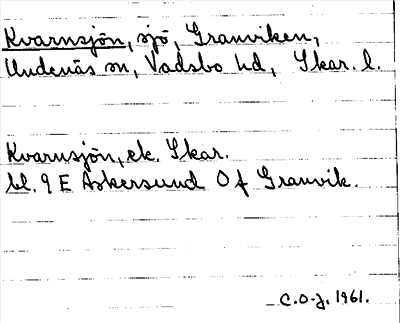 Kvarnsjön, sjö, Granviken,
Undenäs sn, Vadsbo hd, Skar. l.
Kvarnsjön, ek. Skar.
bl. 9 E Askersund O f Granvik.
C.O-J. 1961.